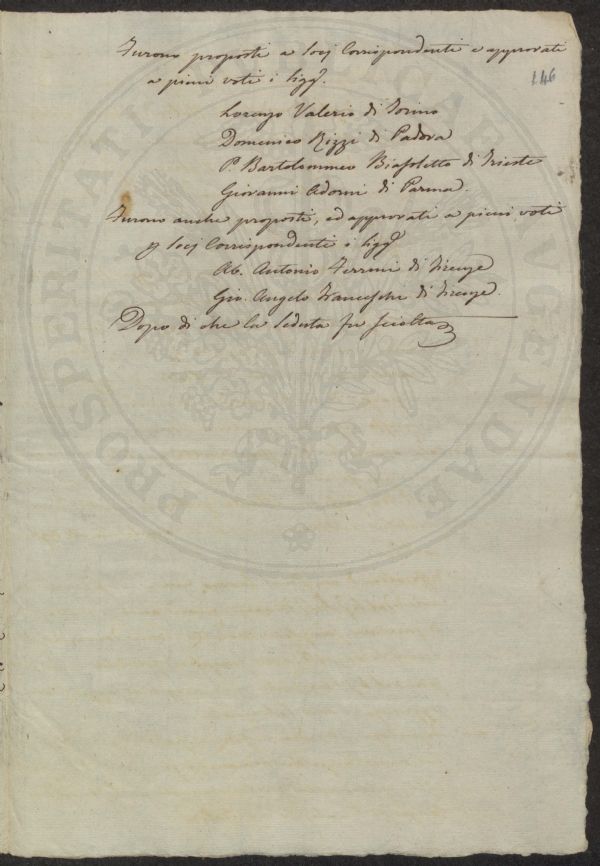 Furono proposti a Socj Corrispondenti e approvati
146
a pieni voti i Sigg.
Lorenzo Valerio di Torino
Domenico Rizzi di Padova
P. Bartolommeo Biasoletto di Trieste
Giovanni Adorni di Parma.
Furono anche proposti, ed approvati a pieni voti
p Socj Corrispondenti i Sigg.
Ab. Antonio Ferrini di Firenze
Gio. Angelo Franceschi di Firenze.
Dopo di che la Seduta fu sciolta
PROSPERITATI PUBLICAE AUGENDAE